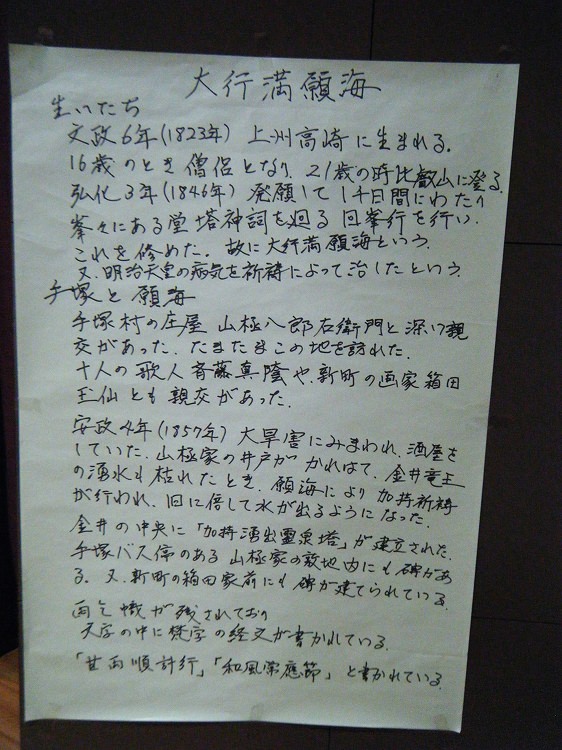 大行満願海
生いたち
文政6年(1823年) 上州高崎に生まれる。
16歳のとき僧侶となり、21歳の時比叡山に登る。
弘化3年(1846年) 発願して1千日間にわたり
峯々にある堂塔神祠を廻る回峯行を行い、
これを修めた。故に大行満願海という。
又、明治天皇の病気を祈祷によって治したという。
手塚と願海
手塚村の庄屋 山極八郎右衛門と深い親
交があった。たまたまこの地を訪れた。
十人の歌人斉藤真蔭や、新町の画家箱田
玉仙とも親交があった。
安政4年(1857年) 大旱害にみまわれ、酒屋を
していた、山極家の井戸がかれはて、金井竜王
の湧水も枯れたとき、願海により加持祈祷
が行われ、旧に倍して水が出るようになった。
金井の中央に「加持湧出霊泉塔」が建立された。
手塚バス停のある山極家の敷地内にも碑があ
る。又、新町の箱田家前にも碑が建てられている。
雨乞幟が残されており
天字の中に梵字の経文が書かれている。
「甘雨順時行」「和風常應節」と書かれている。